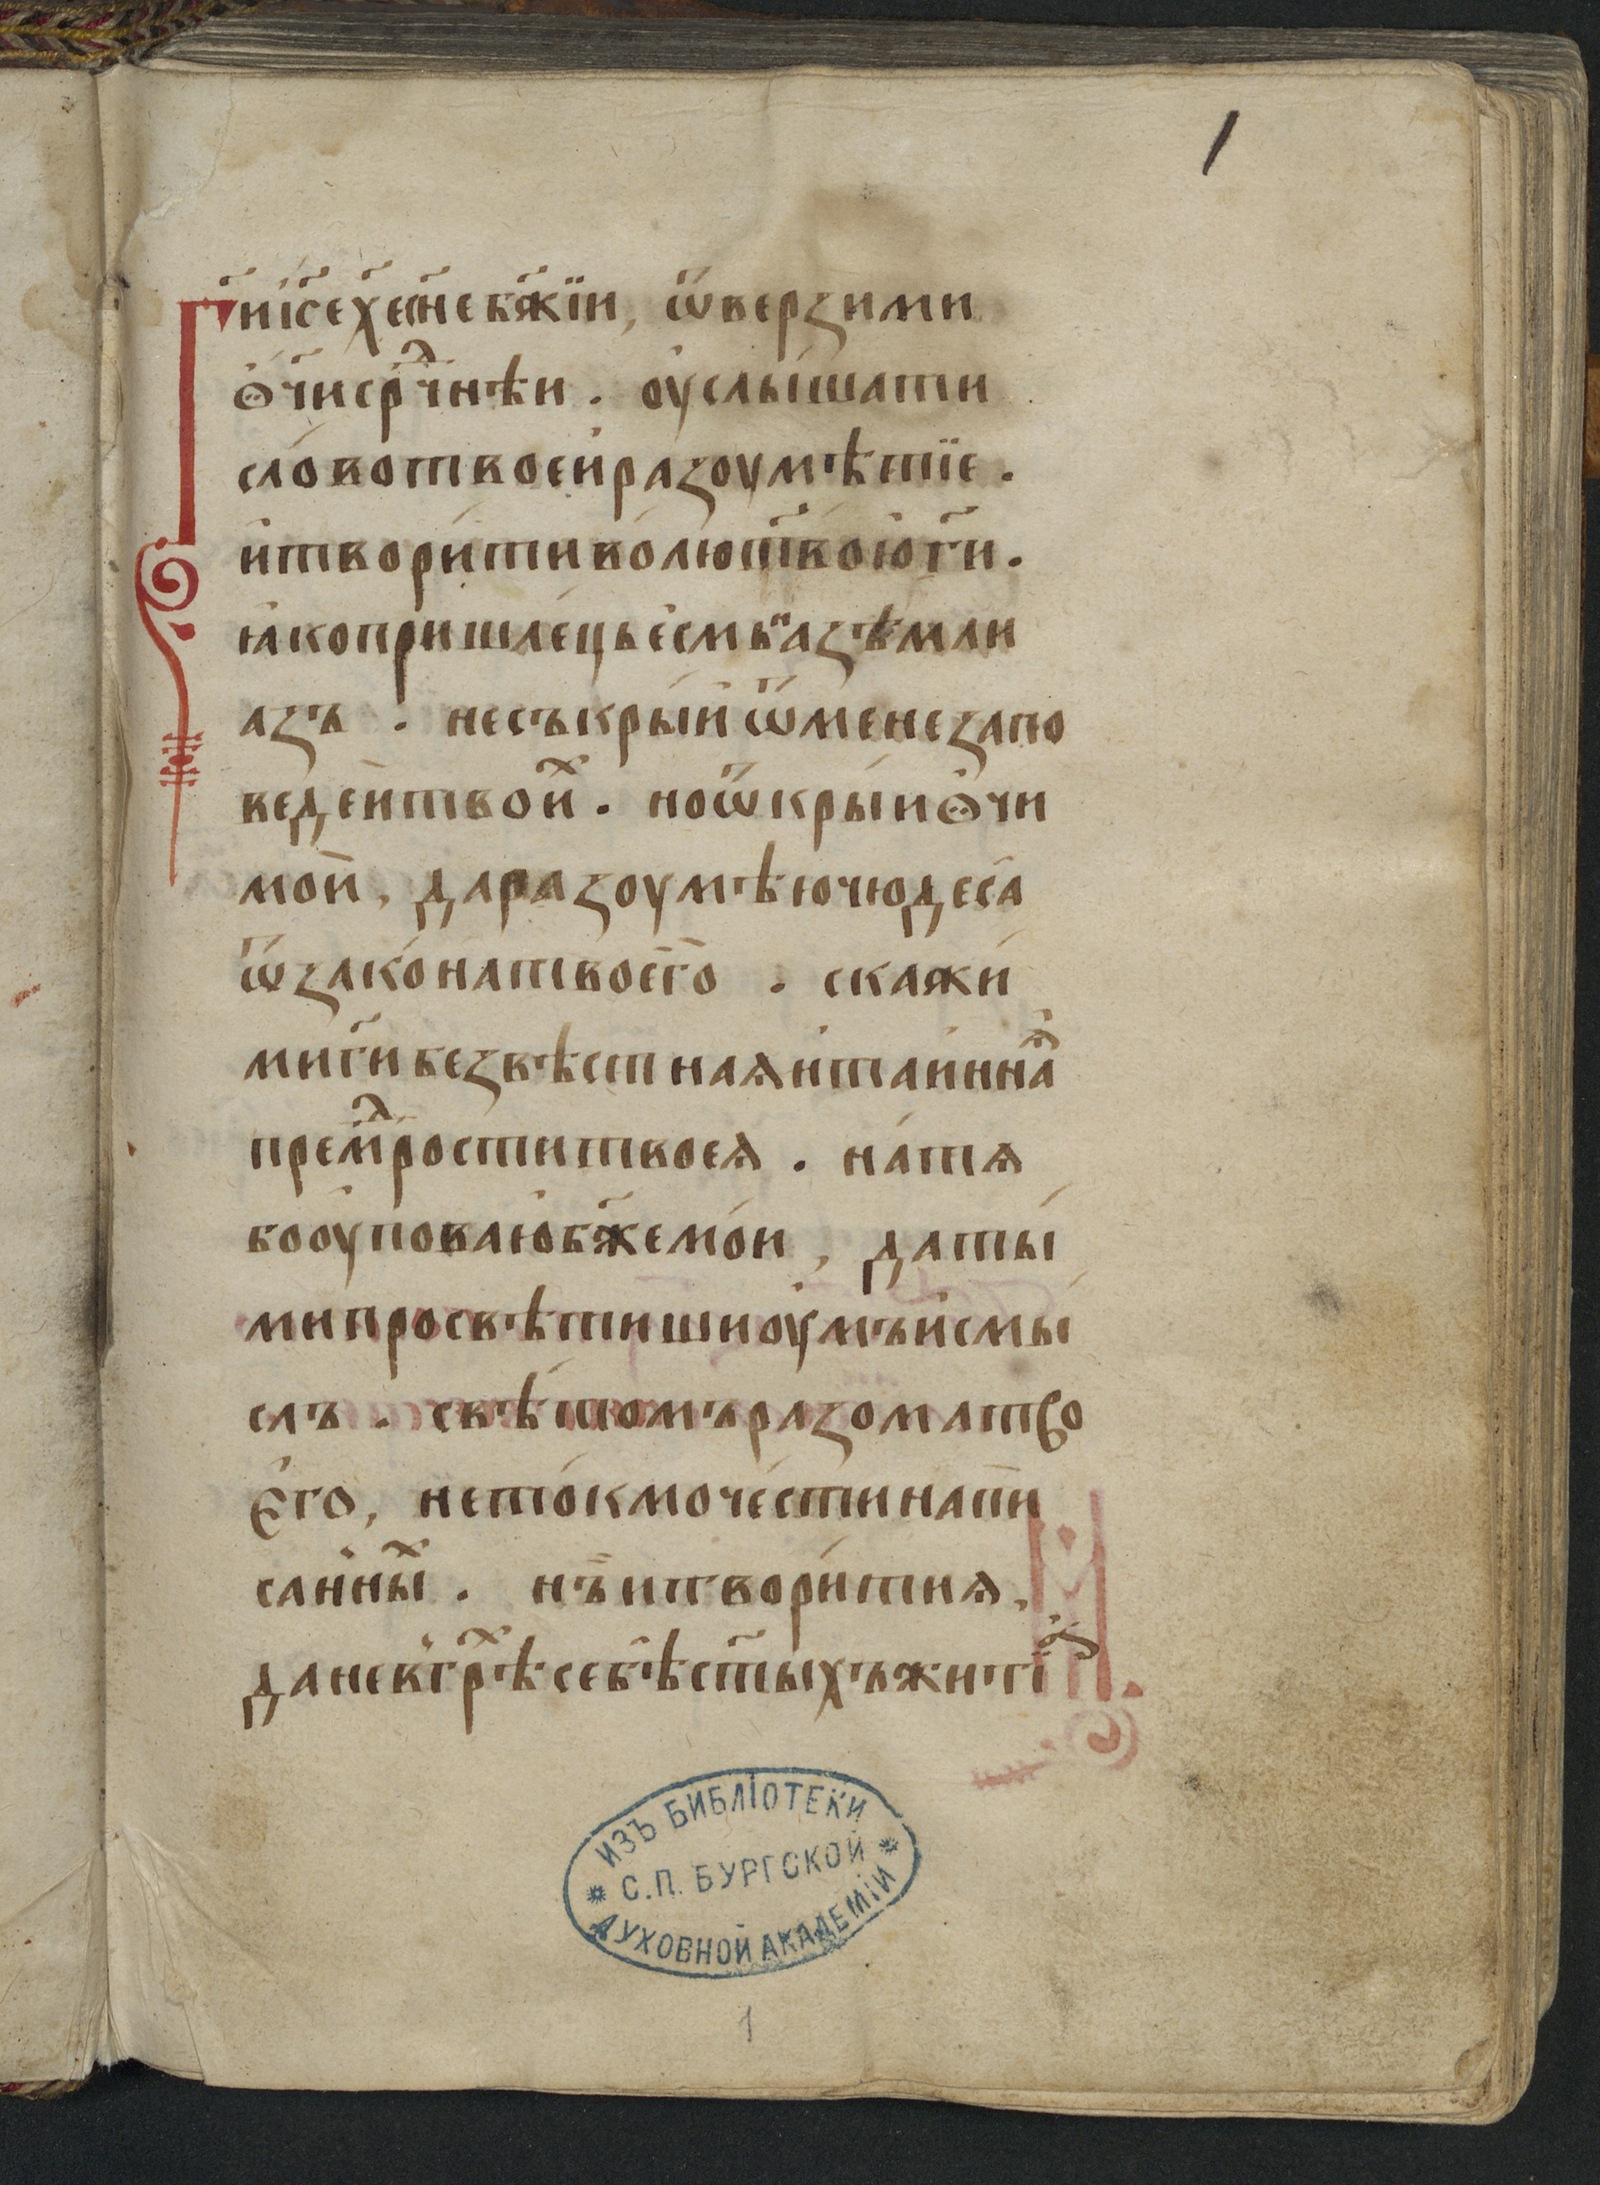 1
Ги҃ іс҃е хе҃ сн҃е бж҃їи, ѿверзи ми
ѻ҆́чи ср҇дчнѣи . оу҆слы́шати
сло́во твое и҆ разоумѣтїе .
и҆ твори́ти во́лю тво́ю г҃и .
ꙗ҆ко пришле́ць е҆смь на зѣмли
азъ . не съкры́и ѿ мене запо
ведеи твои҇х . но ѿкры́и ѻ҆чи
мои , да разоумѣю чюдеса̀
ѿ зако́на твоего̀ . скажи́
ми г҃и безвѣстнаѧ и҆ таиннаѧ
прем҇дрости твоеѧ . на́ тѧ
бо оу҆поваю бж҃е мо́и , да ты́
ми просвѣтиши оу҆мъ и҆ смы́
слъ . свѣтомъ разома тво
е҆го , не то́кмо че́сти напи
санны҇х . нъ̀ и твори́ти ѧ ,
да не въ гр҇ѣх себѣ ст҃ыхъ житїꙗ
ИЗЪ БИБЛІОТЕКИ
С.П. БУРГСКОЙ
ДУХОВНОЙ АКАДЕМІИ
1